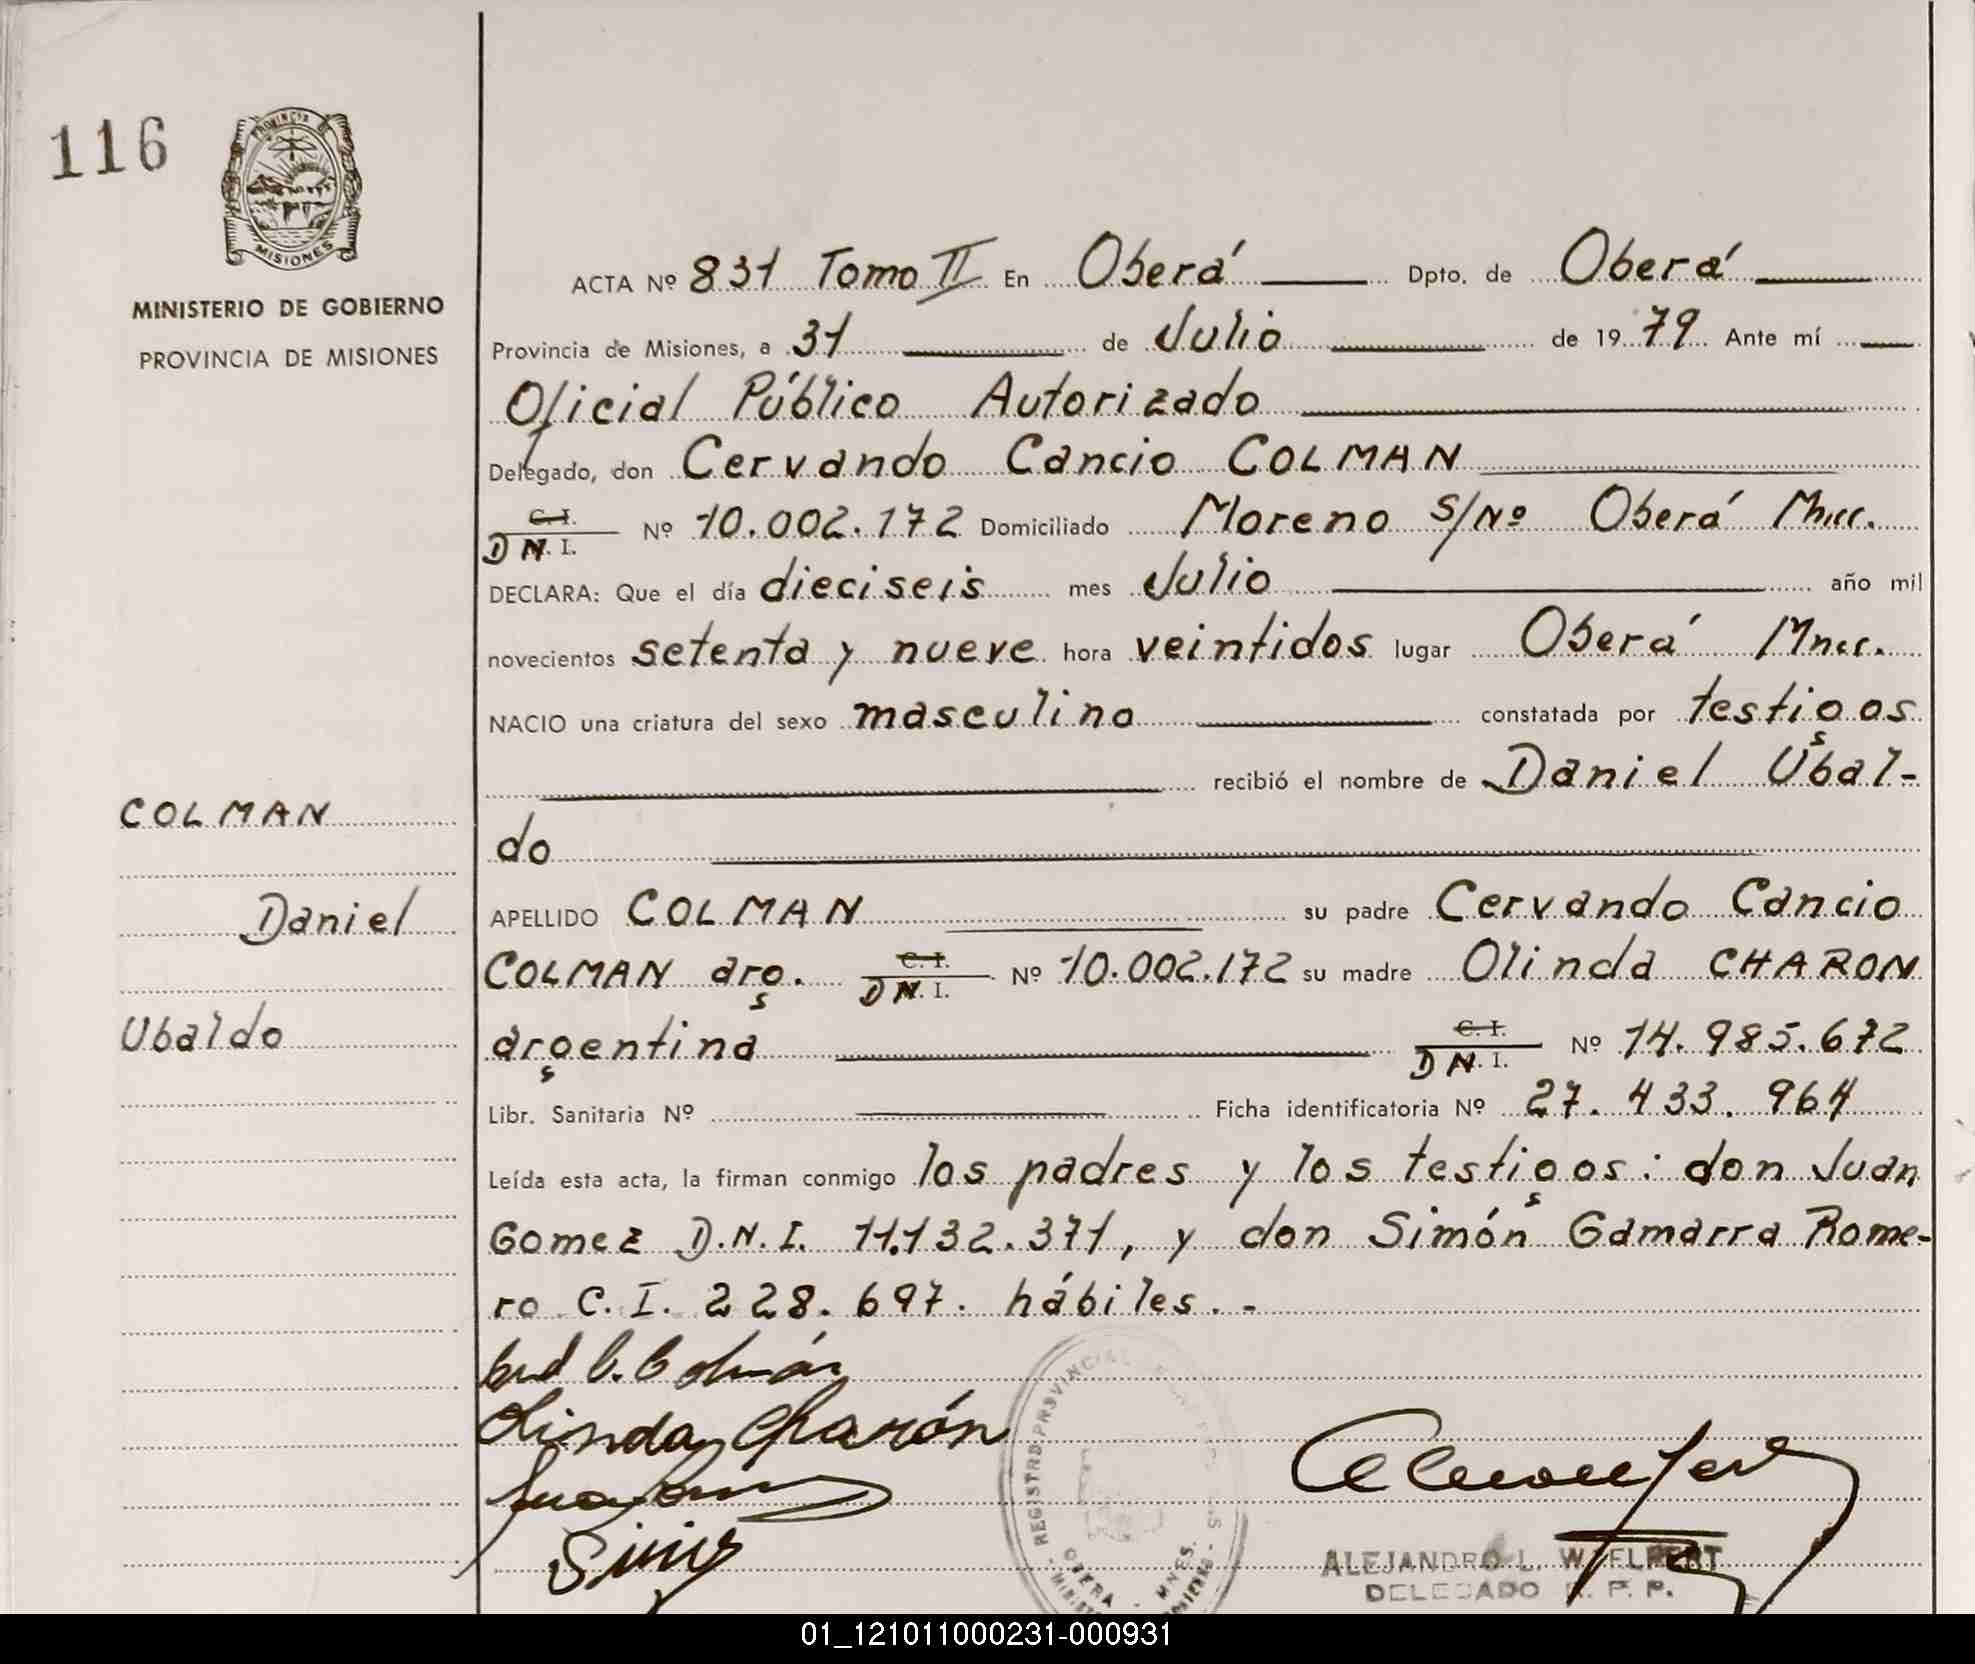 116
PROVINCIA DE
MISIONES
MINISTERIO DE GOBIERNO
PROVINCIA DE MISIONES
COLMAN
Daniel
Ubaldo
ACTA Nº 831 Tomo II En Oberá Dpto. de Oberá
Provincia de Misiones, a 31 de Julio de 1979 Ante mí
Oficial Público Autorizado
Delegado, don Cervando Cancio COLMAN
C. I.
D N. I. Nº 10.002.172 Domiciliado Moreno S/Nº Oberá
DECLARA: Que el día dieciseis mes Julio año mil
novecientos setenta y nueve hora veintidos lugar Oberá
NACIO una criatura del sexo masculino constatada por testigos
recibió el nombre de Daniel Ubal-
do
APELLIDO COLMAN su padre Cervando Cancio
COLMAN arg. C. I.
D N. I. Nº 10.002.172 su madre Olinda CHARON
argentina C. I.
D N. I. Nº 14.985.672
Libr. Sanitaria Nº Ficha identificatoria Nº 27.433.964
Leída esta acta, la firman conmigo los padres y los testigos: don Juan
Gomez D.N.I. 11.132.371, y don Simón Gamarra Rome-
ro C.I. 228.697. hábiles.-
Olinda Charón
REGISTRO PROVINCIAL
OBERA - MNES.
ALEJANDRO L.
DELEGADO R. P. P.
01_121011000231-000931